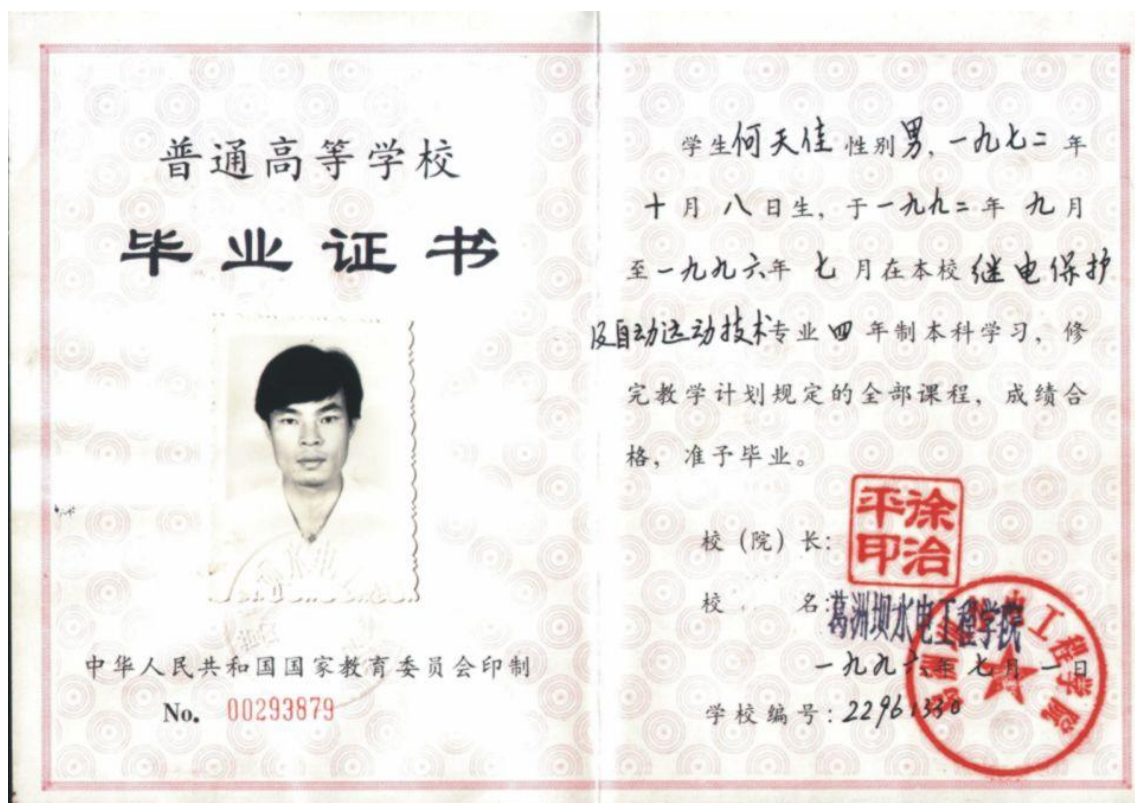 普通高等学校
毕业证书
中华人民共和国国家教育委员会印制
No. 00293879
学生何天佳性别男,一九七二年
十月八日生,于一九九二年九月
至一九九六年七月在本校继电保护
及自动远动技术专业四年制本科学习,修
完教学计划规定的全部课程,成绩合
格,准予毕业。
校(院)长:
徐治平印
校名:葛洲坝水电工程学院
一九九六年七月一日
学校编号:22961330